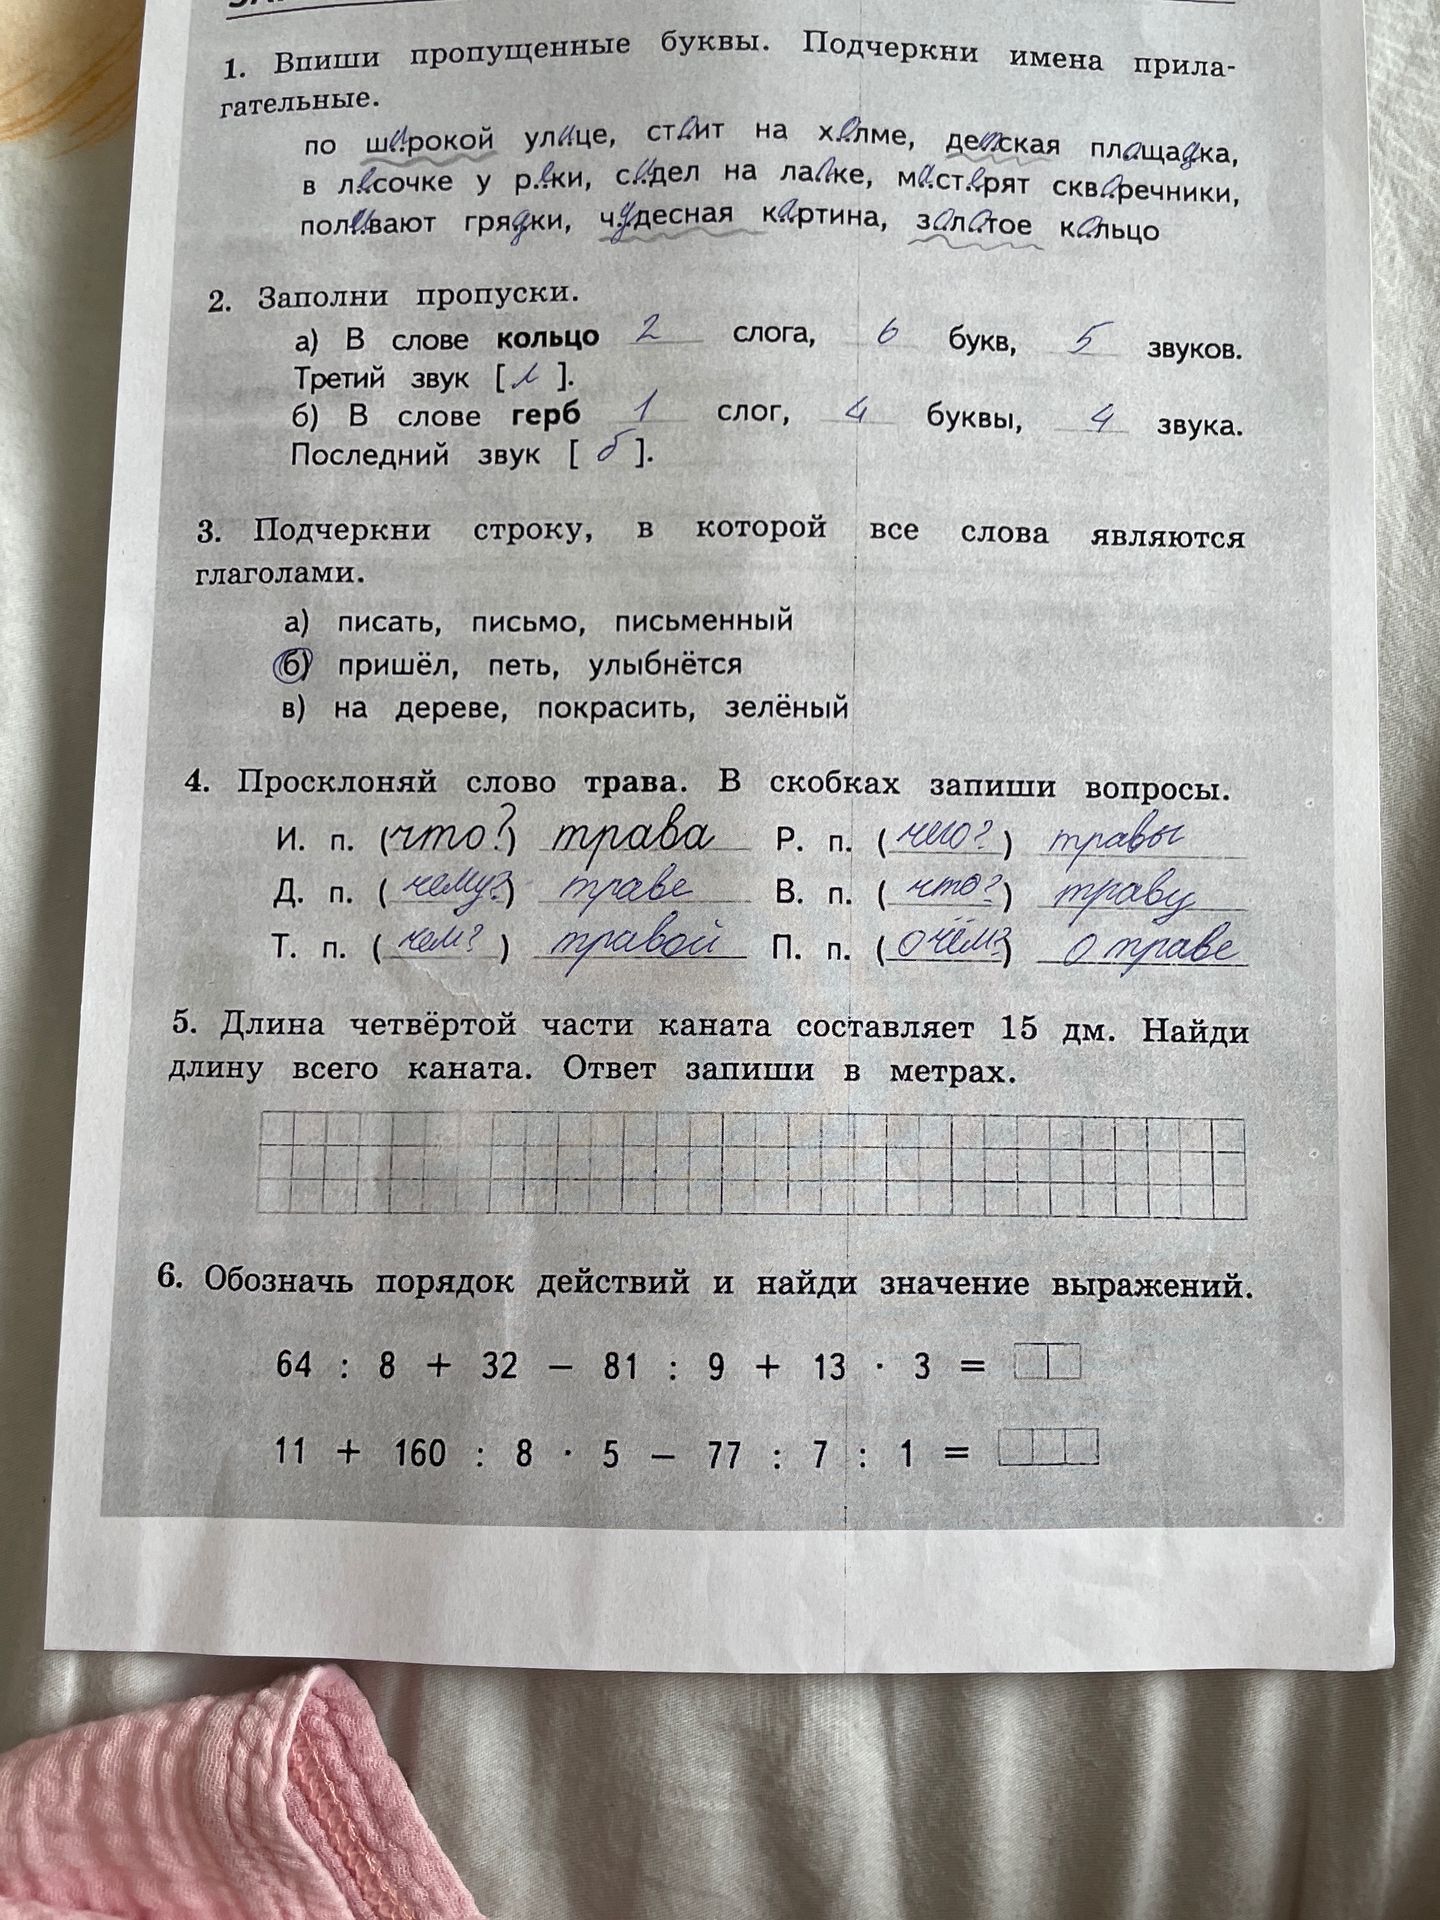 1. Впиши пропущенные буквы. Подчеркни имена прила-
гательные.
по широкой улице, стоит на холме, детская площадка,
в лесочке у реки, сидел на лавке, мастерят скваречники,
поливают грядки, чудесная картина, залатое кальцо
2. Заполни пропуски.
а) В слове кольцо 2 слога, 6 букв, 5 звуков.
Третий звук [ л ].
б) В слове герб 1 слог, 4 буквы, 4 звука.
Последний звук [ б ].
3. Подчеркни строку, в которой все слова являются
глаголами.
а) писать, письмо, письменный
б) пришёл, петь, улыбнётся
в) на дереве, покрасить, зелёный
4. Просклоняй слово трава. В скобках запиши вопросы.
И. п. (что?) трава Р. п. (чего?) травы
Д. п. (чему?) траве В. п. (что?) траву
Т. п. (чем?) травой П. п. (о чём?) о траве
5. Длина четвёртой части каната составляет 15 дм. Найди
длину всего каната. Ответ запиши в метрах.
6. Обозначь порядок действий и найди значение выражений.
64 : 8 + 32 − 81 : 9 + 13 · 3 =
11 + 160 : 8 · 5 − 77 : 7 : 1 =